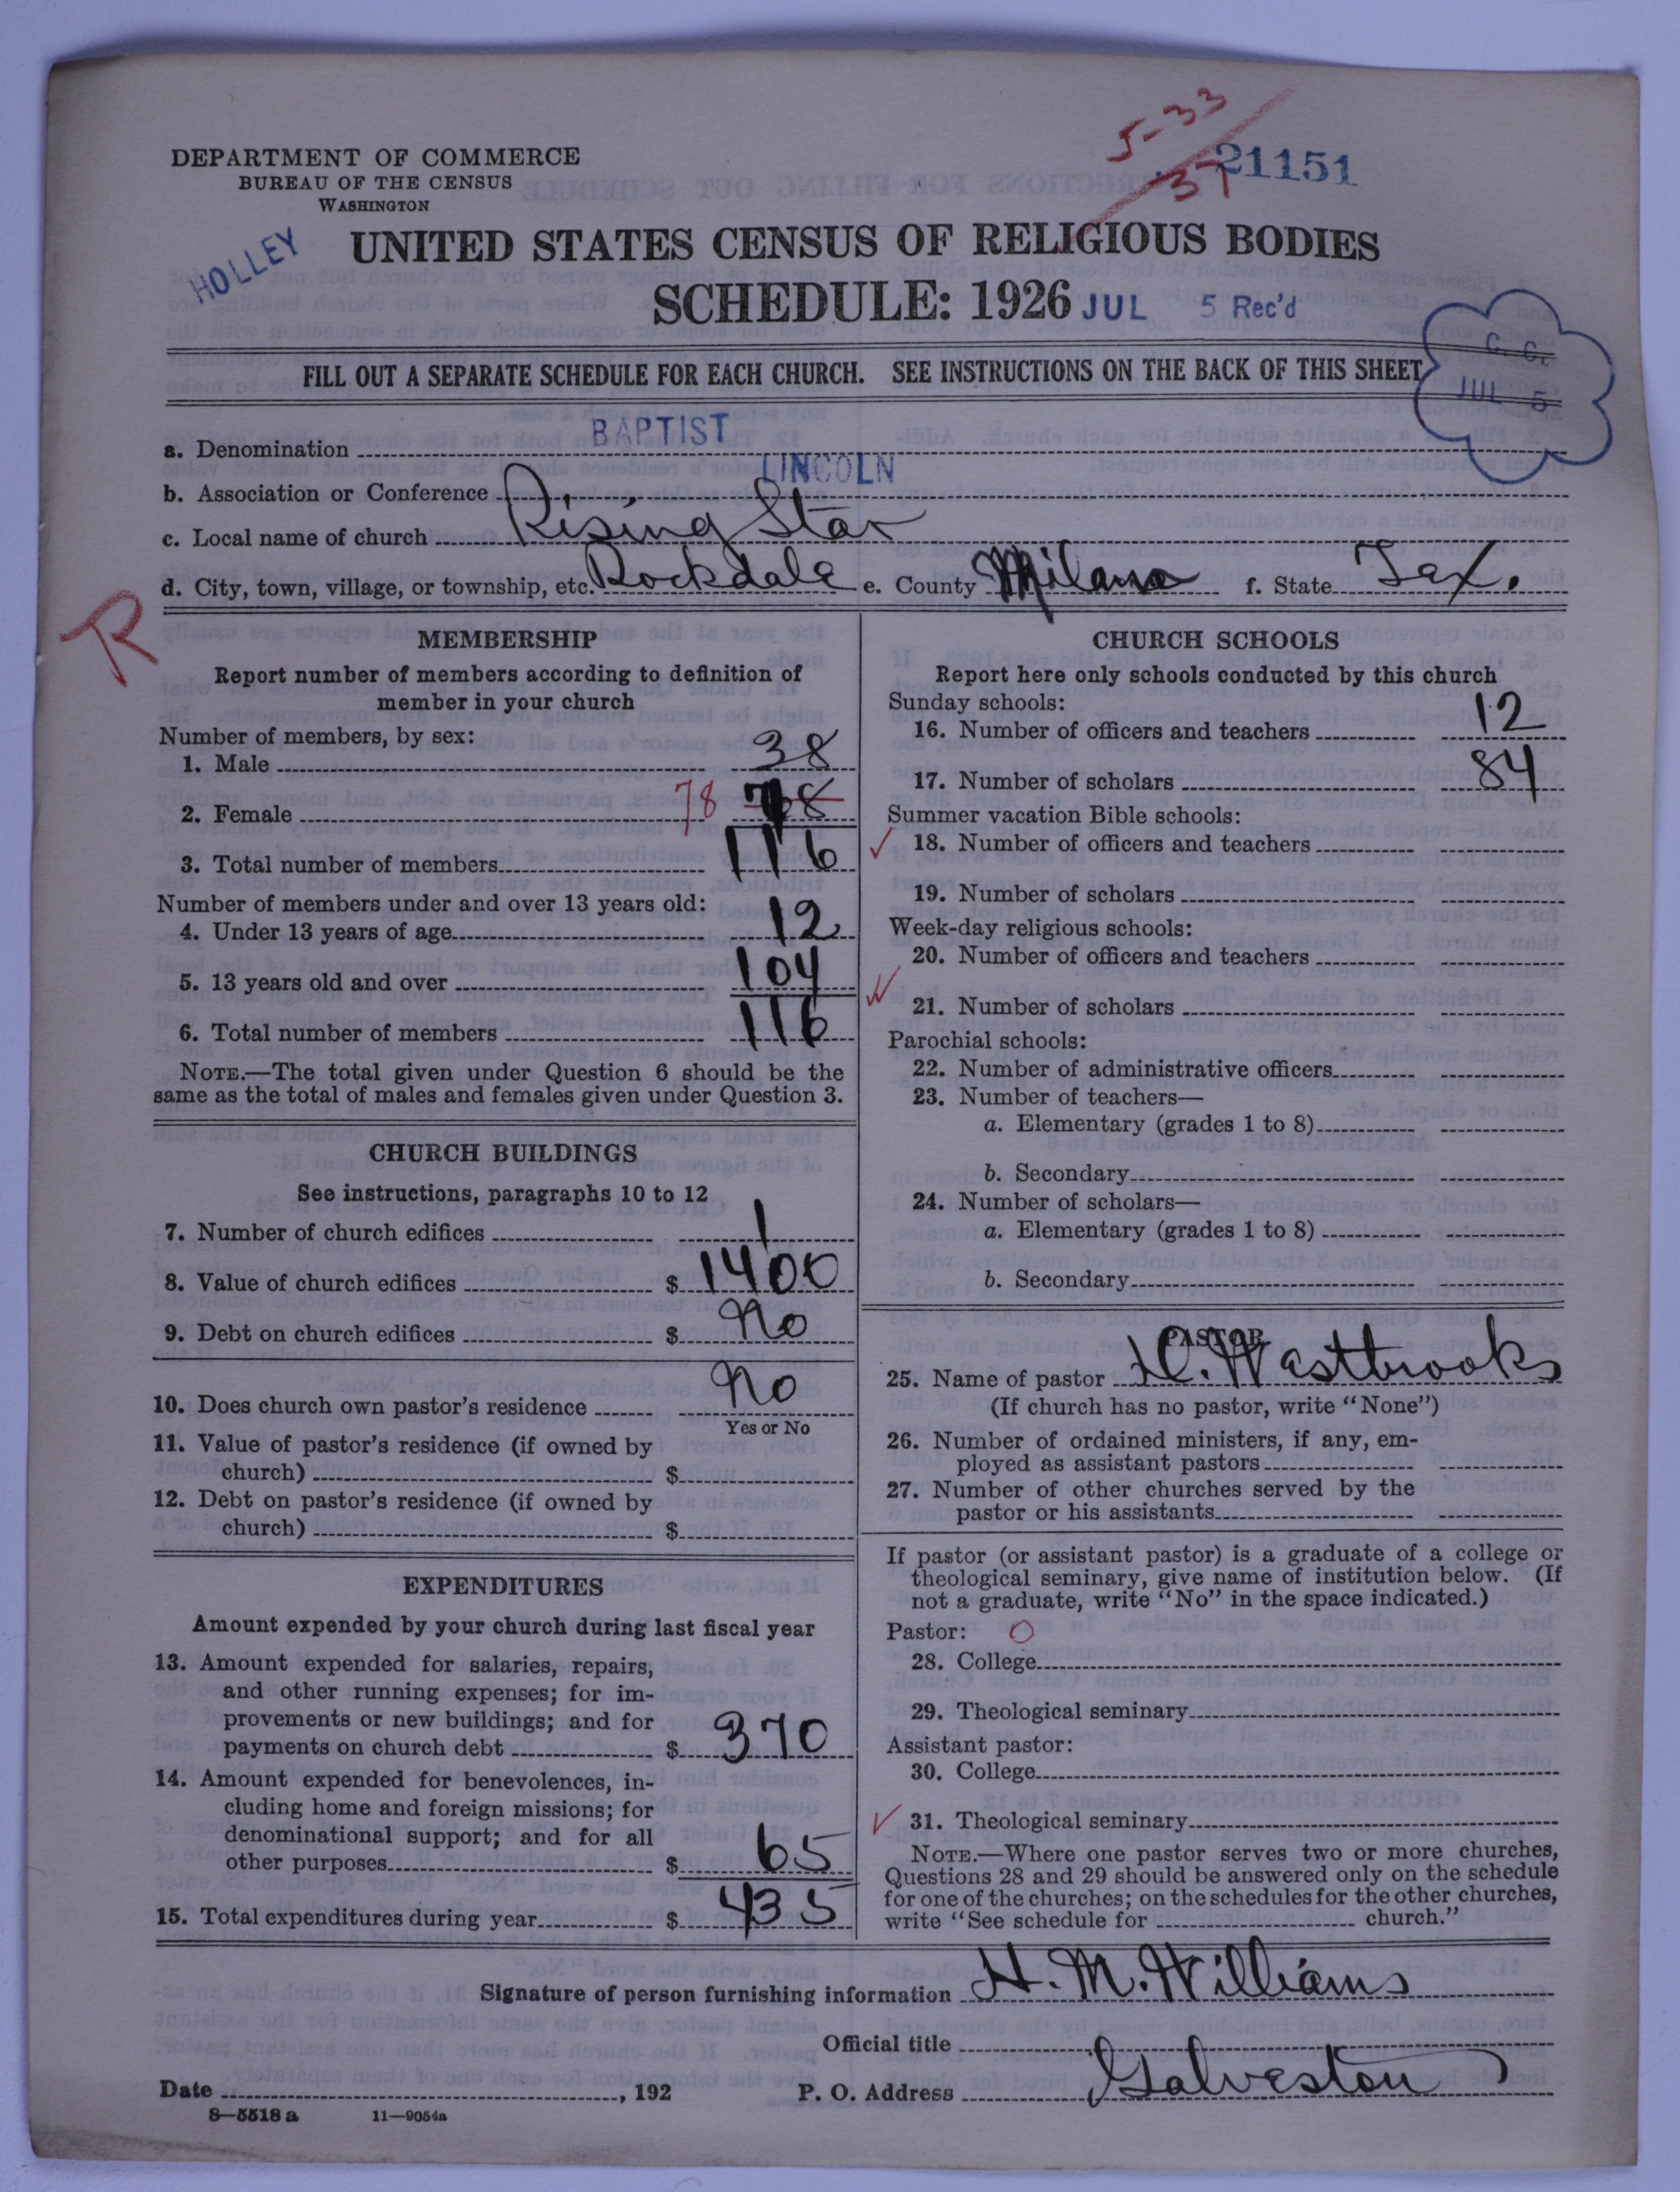 5-33
37
21151
DEPARTMENT OF COMMERCE
BUREAU OF THE CENSUS
WASHINGTON
HOLLEY
UNITED STATES CENSUS OF RELIGIOUS BODIES
SCHEDULE: 1926 JUL 5 Rec'd
C. C.
JUL 5
FILL OUT A SEPARATE SCHEDULE FOR EACH CHURCH. SEE INSTRUCTIONS ON THE BACK OF THIS SHEET
a. Denomination BAPTIST
b. Association or Conference LINCOLN
c. Local name of church Rising Star
d. City, town, village, or township, etc. Rockdale e. County Milam f. State Tex.
R
MEMBERSHIP
Report number of members according to definition of
member in your church
Number of members, by sex:
1. Male 38
2. Female 78 78
3. Total number of members 116
Number of members under and over 13 years old:
4. Under 13 years of age 12
5. 13 years old and over 104
6. Total number of members 116
NOTE.—The total given under Question 6 should be the
same as the total of males and females given under Question 3.
CHURCH BUILDINGS
See instructions, paragraphs 10 to 12
7. Number of church edifices 1
8. Value of church edifices $ 1400
9. Debt on church edifices $ No
10. Does church own pastor's residence No
Yes or No
11. Value of pastor's residence (if owned by
church) $
12. Debt on pastor's residence (if owned by
church) $
EXPENDITURES
Amount expended by your church during last fiscal year
13. Amount expended for salaries, repairs,
and other running expenses; for im-
provements or new buildings; and for
payments on church debt $ 370
14. Amount expended for benevolences, in-
cluding home and foreign missions; for
denominational support; and for all
other purposes $ 65
15. Total expenditures during year $ 435
CHURCH SCHOOLS
Report here only schools conducted by this church
Sunday schools:
16. Number of officers and teachers 12
17. Number of scholars 84
Summer vacation Bible schools:
18. Number of officers and teachers
19. Number of scholars
Week-day religious schools:
20. Number of officers and teachers
21. Number of scholars
Parochial schools:
22. Number of administrative officers
23. Number of teachers—
a. Elementary (grades 1 to 8)
b. Secondary
24. Number of scholars—
a. Elementary (grades 1 to 8)
b. Secondary
PASTOR
25. Name of pastor Westbrooks
(If church has no pastor, write "None")
26. Number of ordained ministers, if any, em-
ployed as assistant pastors
27. Number of other churches served by the
pastor or his assistants
If pastor (or assistant pastor) is a graduate of a college or
theological seminary, give name of institution below. (If
not a graduate, write "No" in the space indicated.)
Pastor: O
28. College
29. Theological seminary
Assistant pastor:
30. College
31. Theological seminary
NOTE.—Where one pastor serves two or more churches,
Questions 28 and 29 should be answered only on the schedule
for one of the churches; on the schedules for the other churches,
write "See schedule for church."
Signature of person furnishing information H. M. Williams
Official title
Date , 192 P. O. Address Galveston
8—5518 a 11—9054a